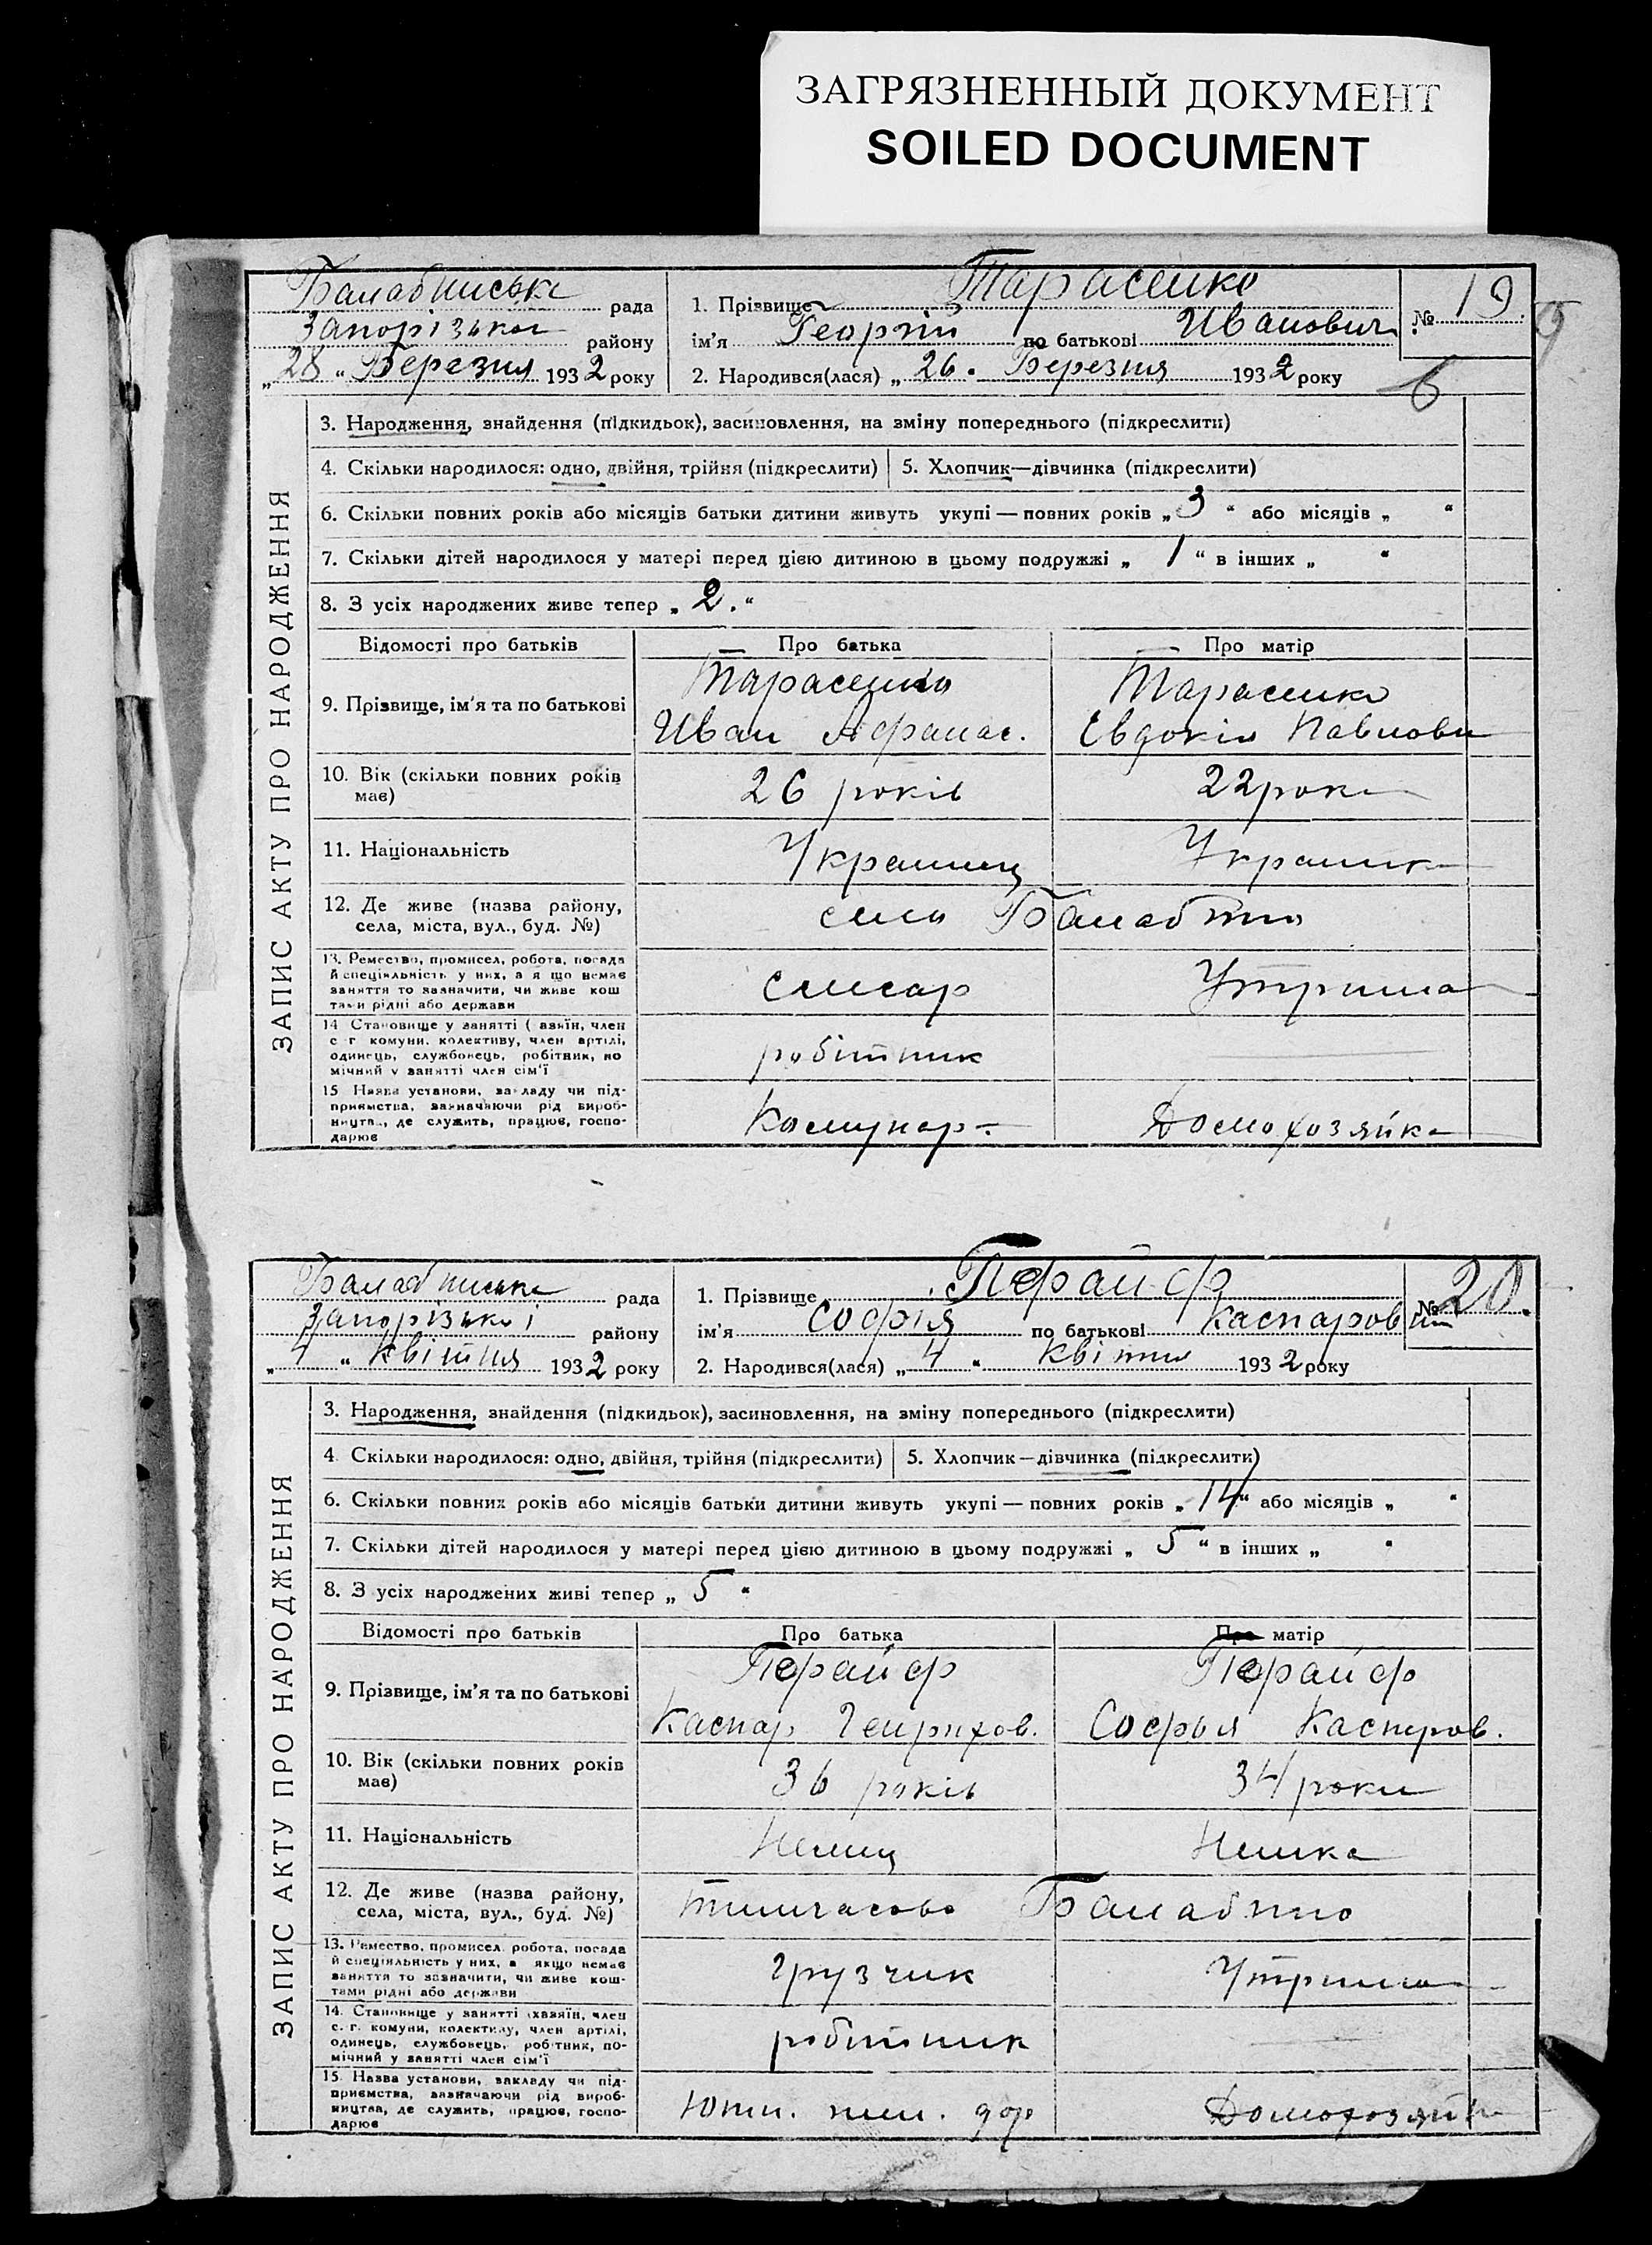 ЗАГРЯЗНЕННЫЙ ДОКУМЕНТ
SOILED DOCUMENT
Балабинська рада
Запорізької району
„28“ Березня 1932 року
1. Прізвище Тарасенко
ім’я Георгій по батькові Иванович
2. Народився(лася) „26. Березня 1932 року
№ 19.
6
ЗАПИС АКТУ ПРО НАРОДЖЕННЯ
3. Народження, знайдення (підкидьок), засиновлення, на зміну попереднього (підкреслити)
4. Скільки народилося: одно, двійня, трійня (підкреслити) 5. Хлопчик—дівчинка (підкреслити)
6. Скільки повних років або місяців батьки дитини живуть укупі — повних років „3“ або місяців „ “
7. Скільки дітей народилося у матері перед цією дитиною в цьому подружжі „1“ в інших „ “
8. З усіх народжених живе тепер „2.“
Відомості про батьків Про батька Про матір
9. Прізвище, ім’я та по батькові
Тарасенко Тарасенко
Иван Афанас. Евдокія Павловн
10. Вік (скільки повних років має) 26 років 22 роки
11. Національність Украинец Украинка
12. Де живе (назва району, села, міста, вул., буд. №) село Балабино
13. Ремество, промисел, робота, посада
й спеціяльність у них, а якщо немає
заняття то зазначити, чи живе кош
тами рідні або держави
слюсар Утрима
14 Становище у занятті (хазяїн, член
с г комуни, колективу, член артілі,
одинець, службовець, робітник, по
мічний у занятті член сім’ї
робітник
15 Назва установи, закладу чи під-
приємства, зазначаючи рід вироб-
ництва, де служить, працює, госпо-
дарює
Комунар. Домохозяйка
Балабинська рада
Запорізької району
„4“ Квітня 1932 року
1. Прізвище Пфайф
ім’я Софія по батькові Каспаровн
2. Народився(лася) „4“ Квітня 1932 року
№ 20.
ЗАПИС АКТУ ПРО НАРОДЖЕННЯ
3. Народження, знайдення (підкидьок), засиновлення, на зміну попереднього (підкреслити)
4. Скільки народилося: одно, двійня, трійня (підкреслити) 5. Хлопчик—дівчинка (підкреслити)
6. Скільки повних років або місяців батьки дитини живуть укупі — повних років „14“ або місяців „ “
7. Скільки дітей народилося у матері перед цією дитиною в цьому подружжі „5“ в інших „ “
8. З усіх народжених живі тепер „5“
Відомості про батьків Про батька Про матір
9. Прізвище, ім’я та по батькові
Пфайф Пфайф
Каспар Генрихов. Софья Каспаров.
10. Вік (скільки повних років має) 36 років 34 роки
11. Національність Немец Немка
12. Де живе (назва району, села, міста, вул., буд. №) тимчасово Балабино
13. Ремество, промисел, робота, посада
й спеціяльність у них, а якщо немає
заняття то зазначити, чи живе кош-
тами рідні або держави
Грузчик Утрима
14. Становище у занятті (хазяїн, член
с. г. комуни, колективу, член артілі,
одинець, службовець, робітник, по-
мічний у занятті член сім’ї
робітник
15. Назва установи, закладу чи під-
приємства, зазначаючи рід вироб-
ництва, де служить, працює, госпо-
дарює
Домохозяйка